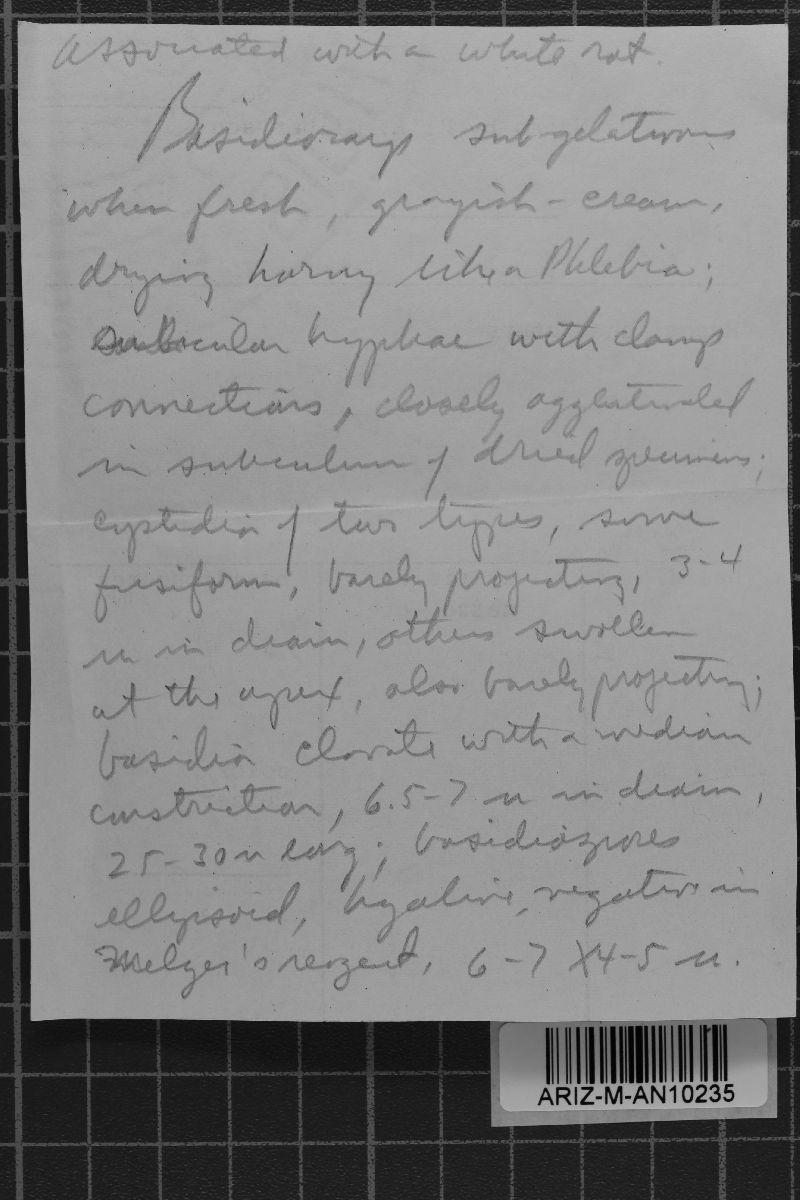 associated with a white rot.
Basidiocarp sub-gelatinous
when fresh, grayish-cream,
drying horny like a Phlebia;
subicular hyphae with clamp
connections, closely agglutinated
in subiculum of dried specimens;
cystidia of two types, some
fusiform, barely projecting, 3-4
u in diam, others swollen
at the apex, also barely projecting;
basidia clavate with a median
constriction, 6.5-7 u in diam,
25-30 u long; basidiospores
ellipsoid, hyaline, negative in
Melzer's reagent, 6-7 X 4-5 u.
ARIZ-M-AN10235